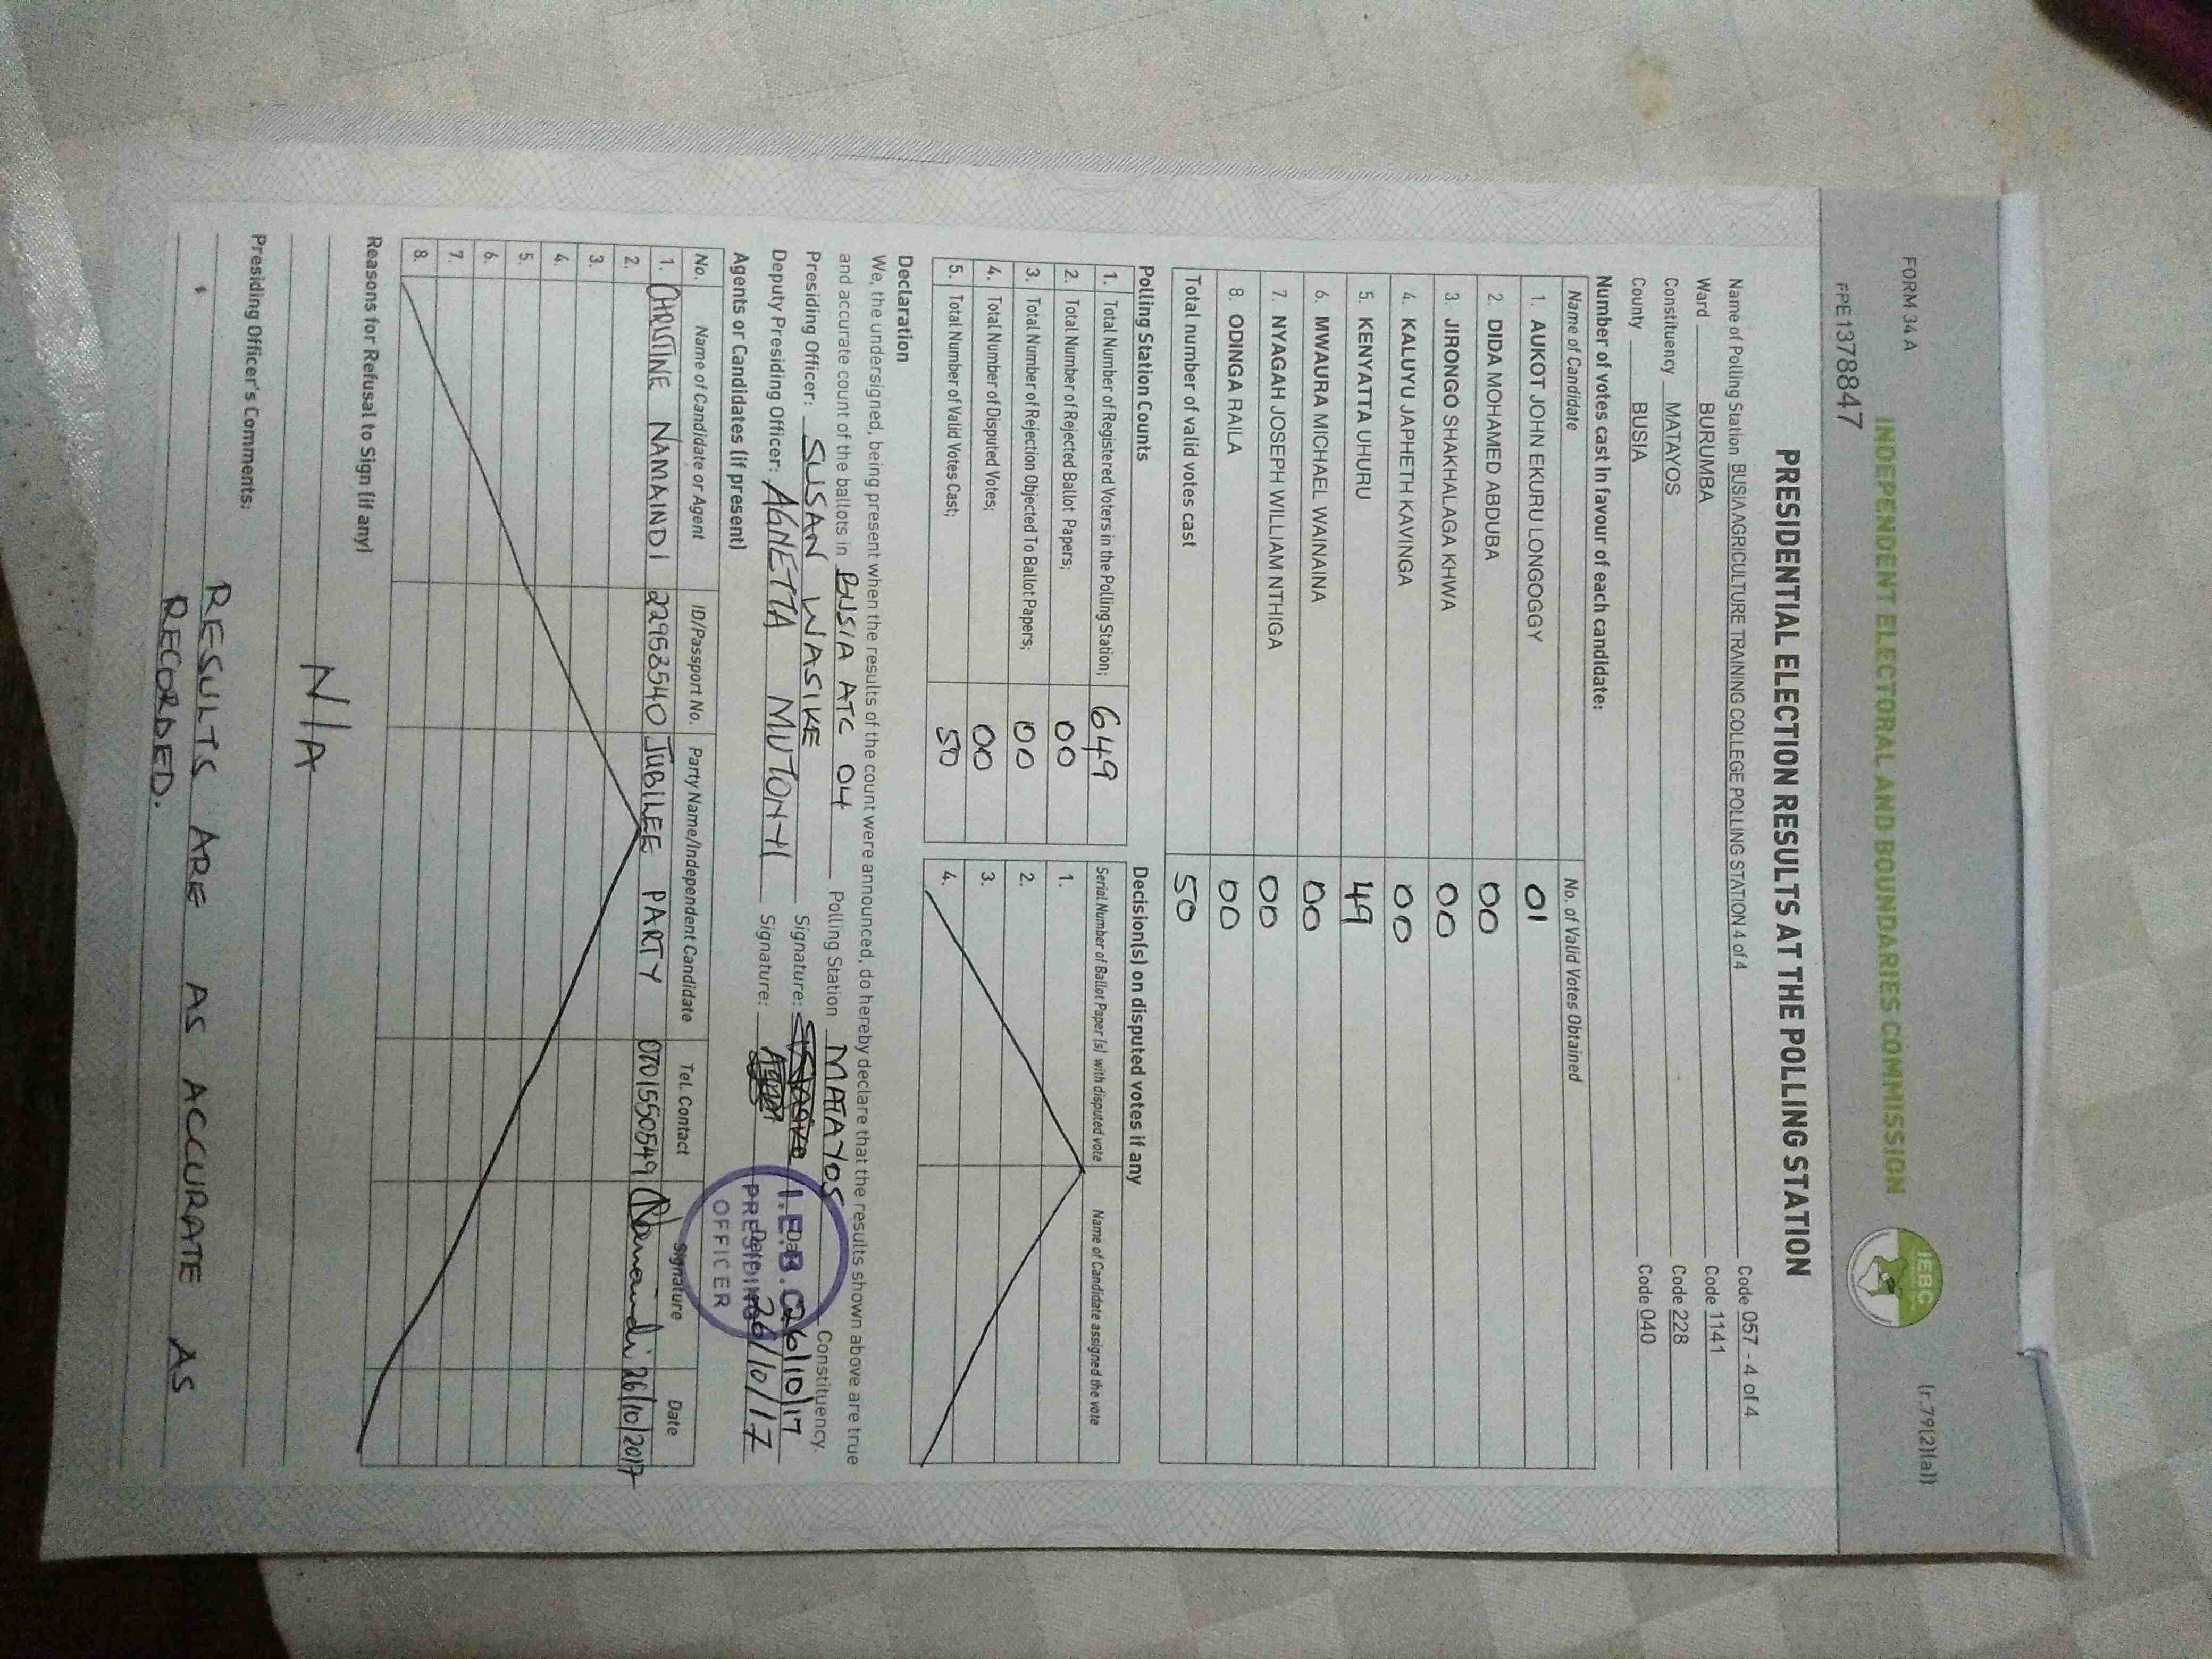 FORM 34 A
(r.79(2)(a))
INDEPENDENT ELECTORAL AND BOUNDARIES COMMISSION
IEBC
FPE1378847
PRESIDENTIAL ELECTION RESULTS AT THE POLLING STATION
Name of Polling Station BUSIA AGRICULTURE TRAINING COLLEGE POLLING STATION 4 of 4 Code 057 - 4 of 4
Ward BURUMBA Code 1141
Constituency MATAYOS Code 228
County BUSIA Code 040
Number of votes cast in favour of each candidate:
Name of Candidate No. of Valid Votes Obtained
1. AUKOT JOHN EKURU LONGOGGY 01
2. DIDA MOHAMED ABDUBA 00
3. JIRONGO SHAKHALAGA KHWA 00
4. KALUYU JAPHETH KAVINGA 00
5. KENYATTA UHURU 49
6. MWAURA MICHAEL WAINAINA 00
7. NYAGAH JOSEPH WILLIAM NTHIGA 00
8. ODINGA RAILA 00
Total number of valid votes cast 50
Polling Station Counts
1. Total Number of Registered Voters in the Polling Station; 649
2. Total Number of Rejected Ballot Papers; 00
3. Total Number of Rejection Objected To Ballot Papers; 00
4. Total Number of Disputed Votes; 00
5. Total Number of Valid Votes Cast; 50
Decision(s) on disputed votes if any
Serial Number of Ballot Paper (s) with disputed vote Name of Candidate assigned the vote
1.
2.
3.
4.
Declaration
We, the undersigned, being present when the results of the count were announced, do hereby declare that the results shown above are true
and accurate count of the ballots in BUSIA ATC 04 Polling Station MATAYOS Constituency.
Presiding Officer: SUSAN WASIKE Signature: Date 26/10/17
Deputy Presiding Officer: AGNETTA MUTONYI Signature: Date 26/10/17
I.E.B.C
PRESIDING
OFFICER
Agents or Candidates (if present)
No. Name of Candidate or Agent ID/Passport No. Party Name/Independent Candidate Tel. Contact Signature Date
1. CHRISTINE NAMAINDI 22953540 JUBILEE PARTY 0701550549 Namaindi 26/10/2017
2.
3.
4.
5.
6.
7.
8.
Reasons for Refusal to Sign (if any)
N/A
Presiding Officer's Comments:
RESULTS ARE AS ACCURATE AS
RECORDED.